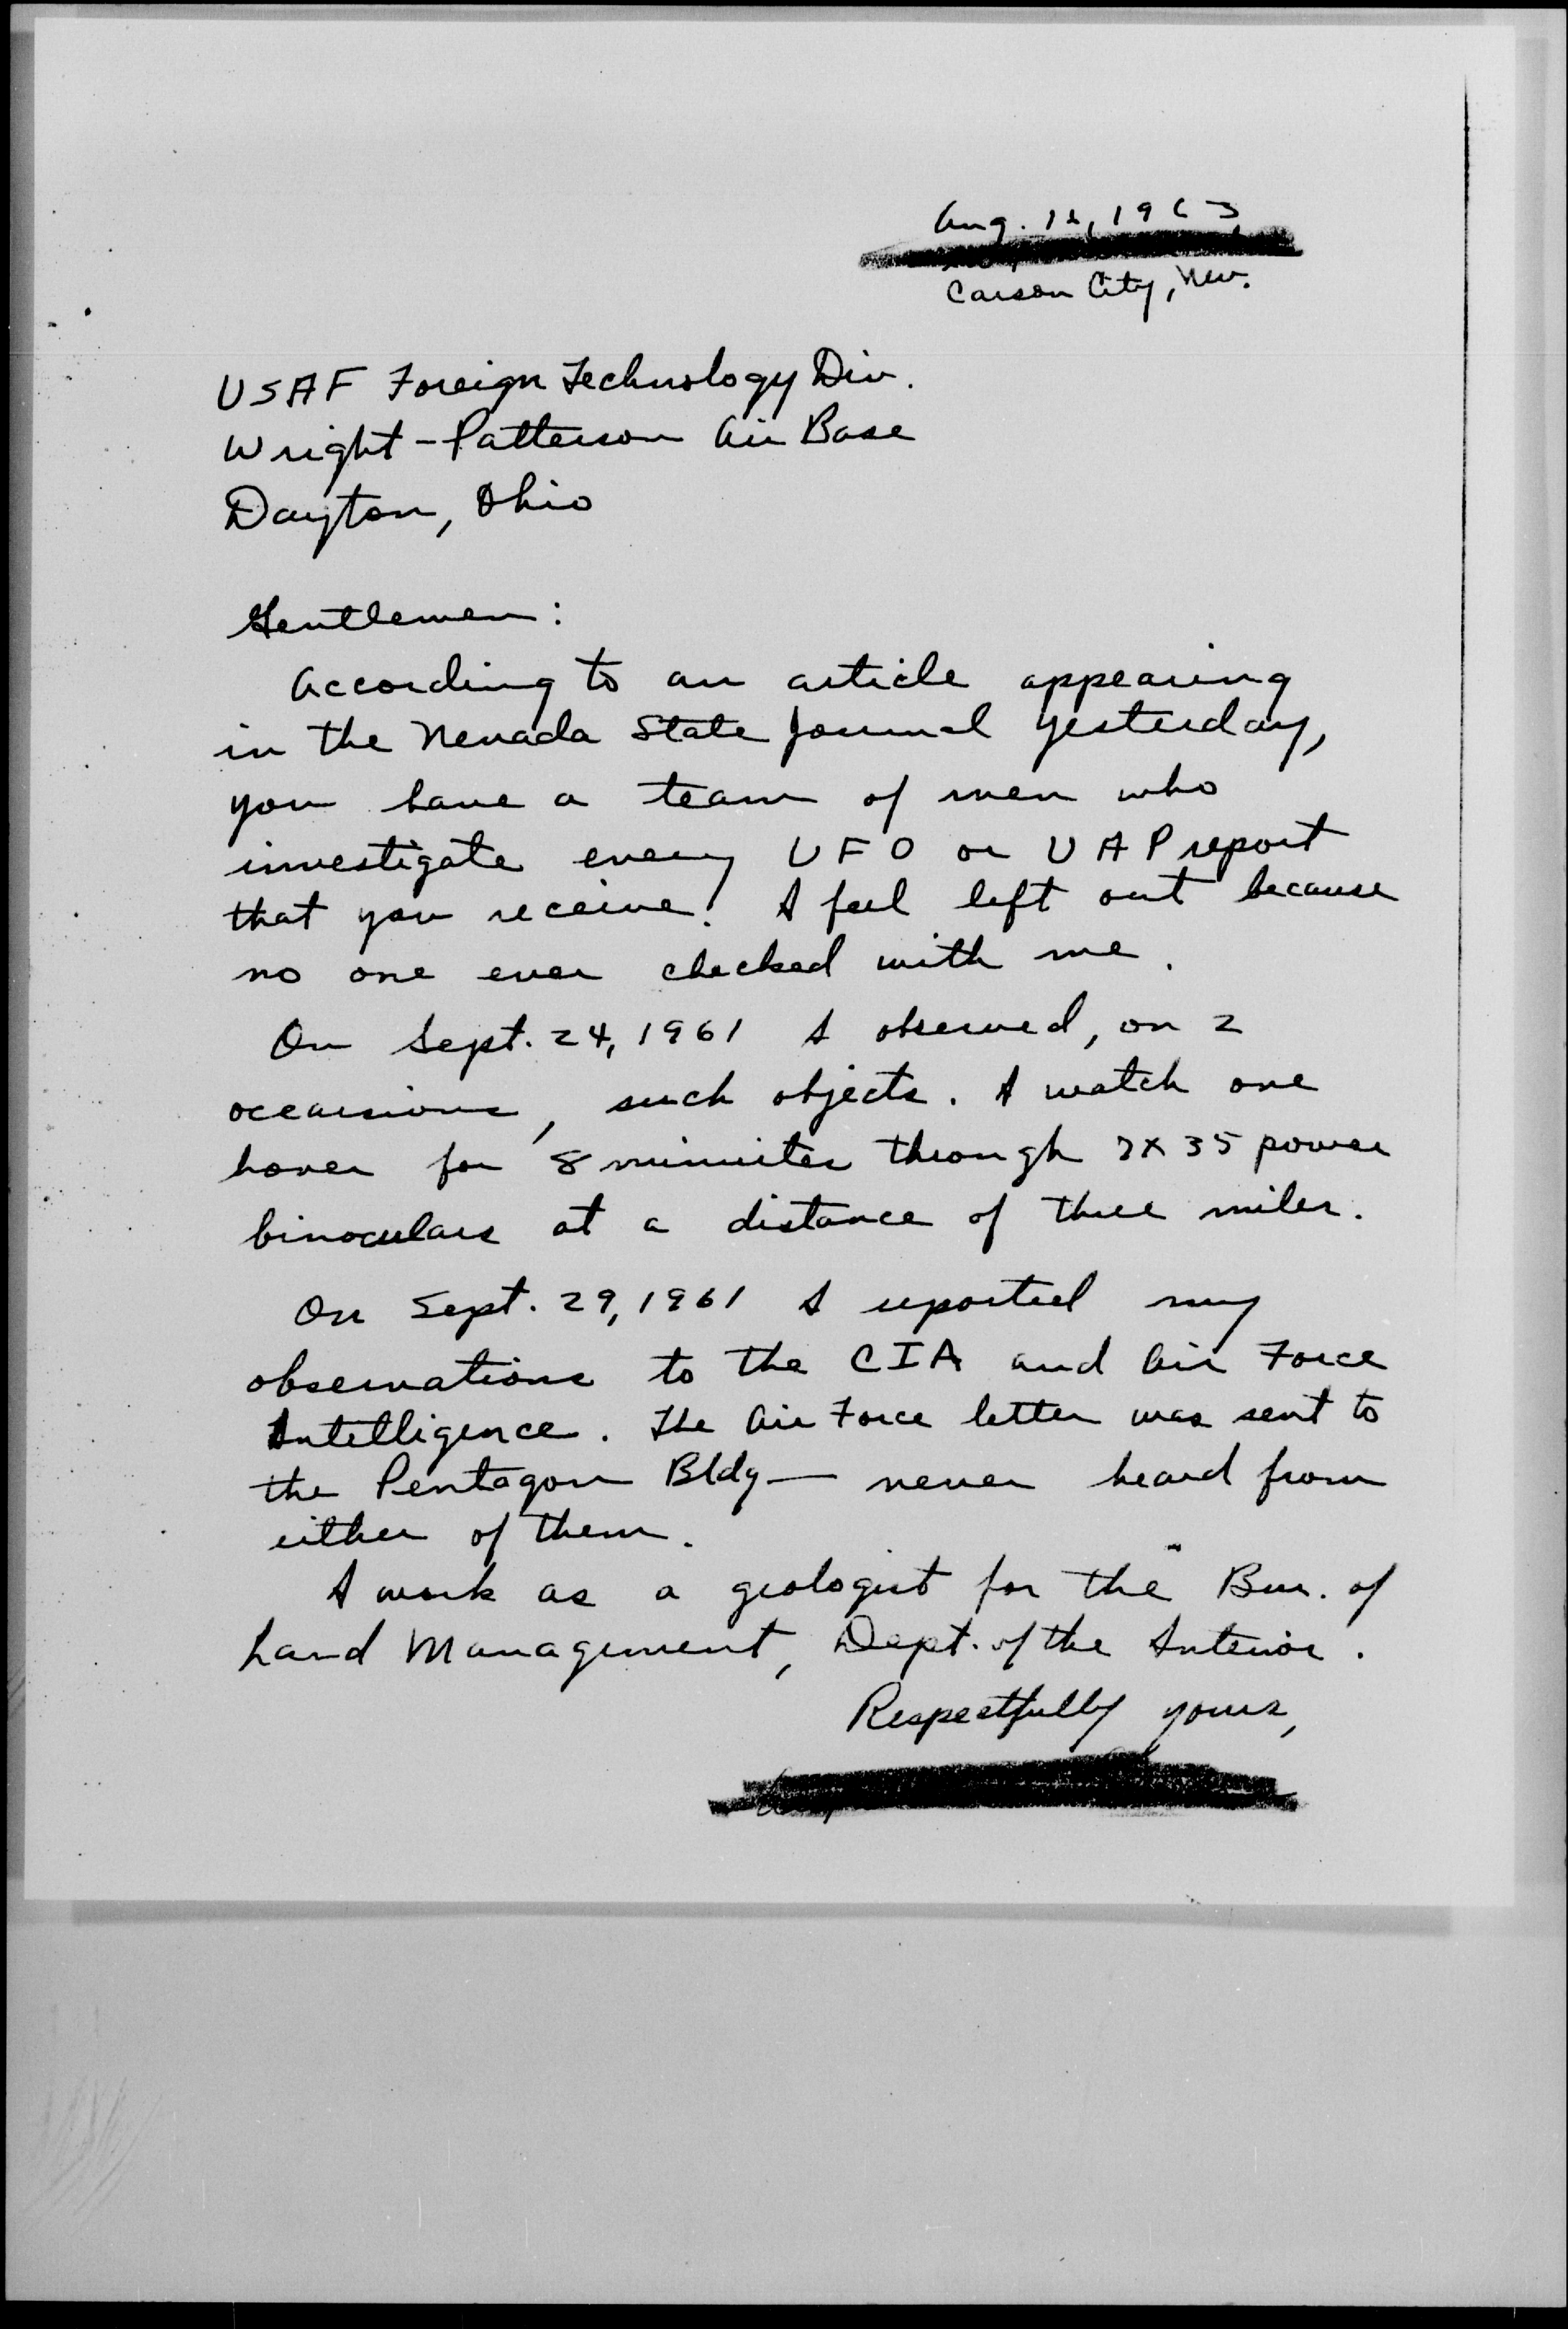 Aug. 12, 1963
Carson City, Nev.
USAF Foreign Technology Div.
Wright-Patterson Air Base
Dayton, Ohio
Gentlemen:
According to an article appearing
in the Nevada State Journal yesterday,
you have a team of men who
investigate every UFO or UAP report
that you receive! I feel left out because
no one ever checked with me.
On Sept. 24, 1961 I observed, on 2
occasions, such objects. I watch one
hover for 8 minutes through 7X35 power
binoculars at a distance of three miles.
On Sept. 29, 1961 I reported my
observations to the CIA and Air Force
Intelligence. The Air Force letter was sent to
the Pentagon Bldg — never heard from
either of them.
I work as a geologist for the Bur. of
Land Management, Dept. of the Interior.
Respectfully yours,